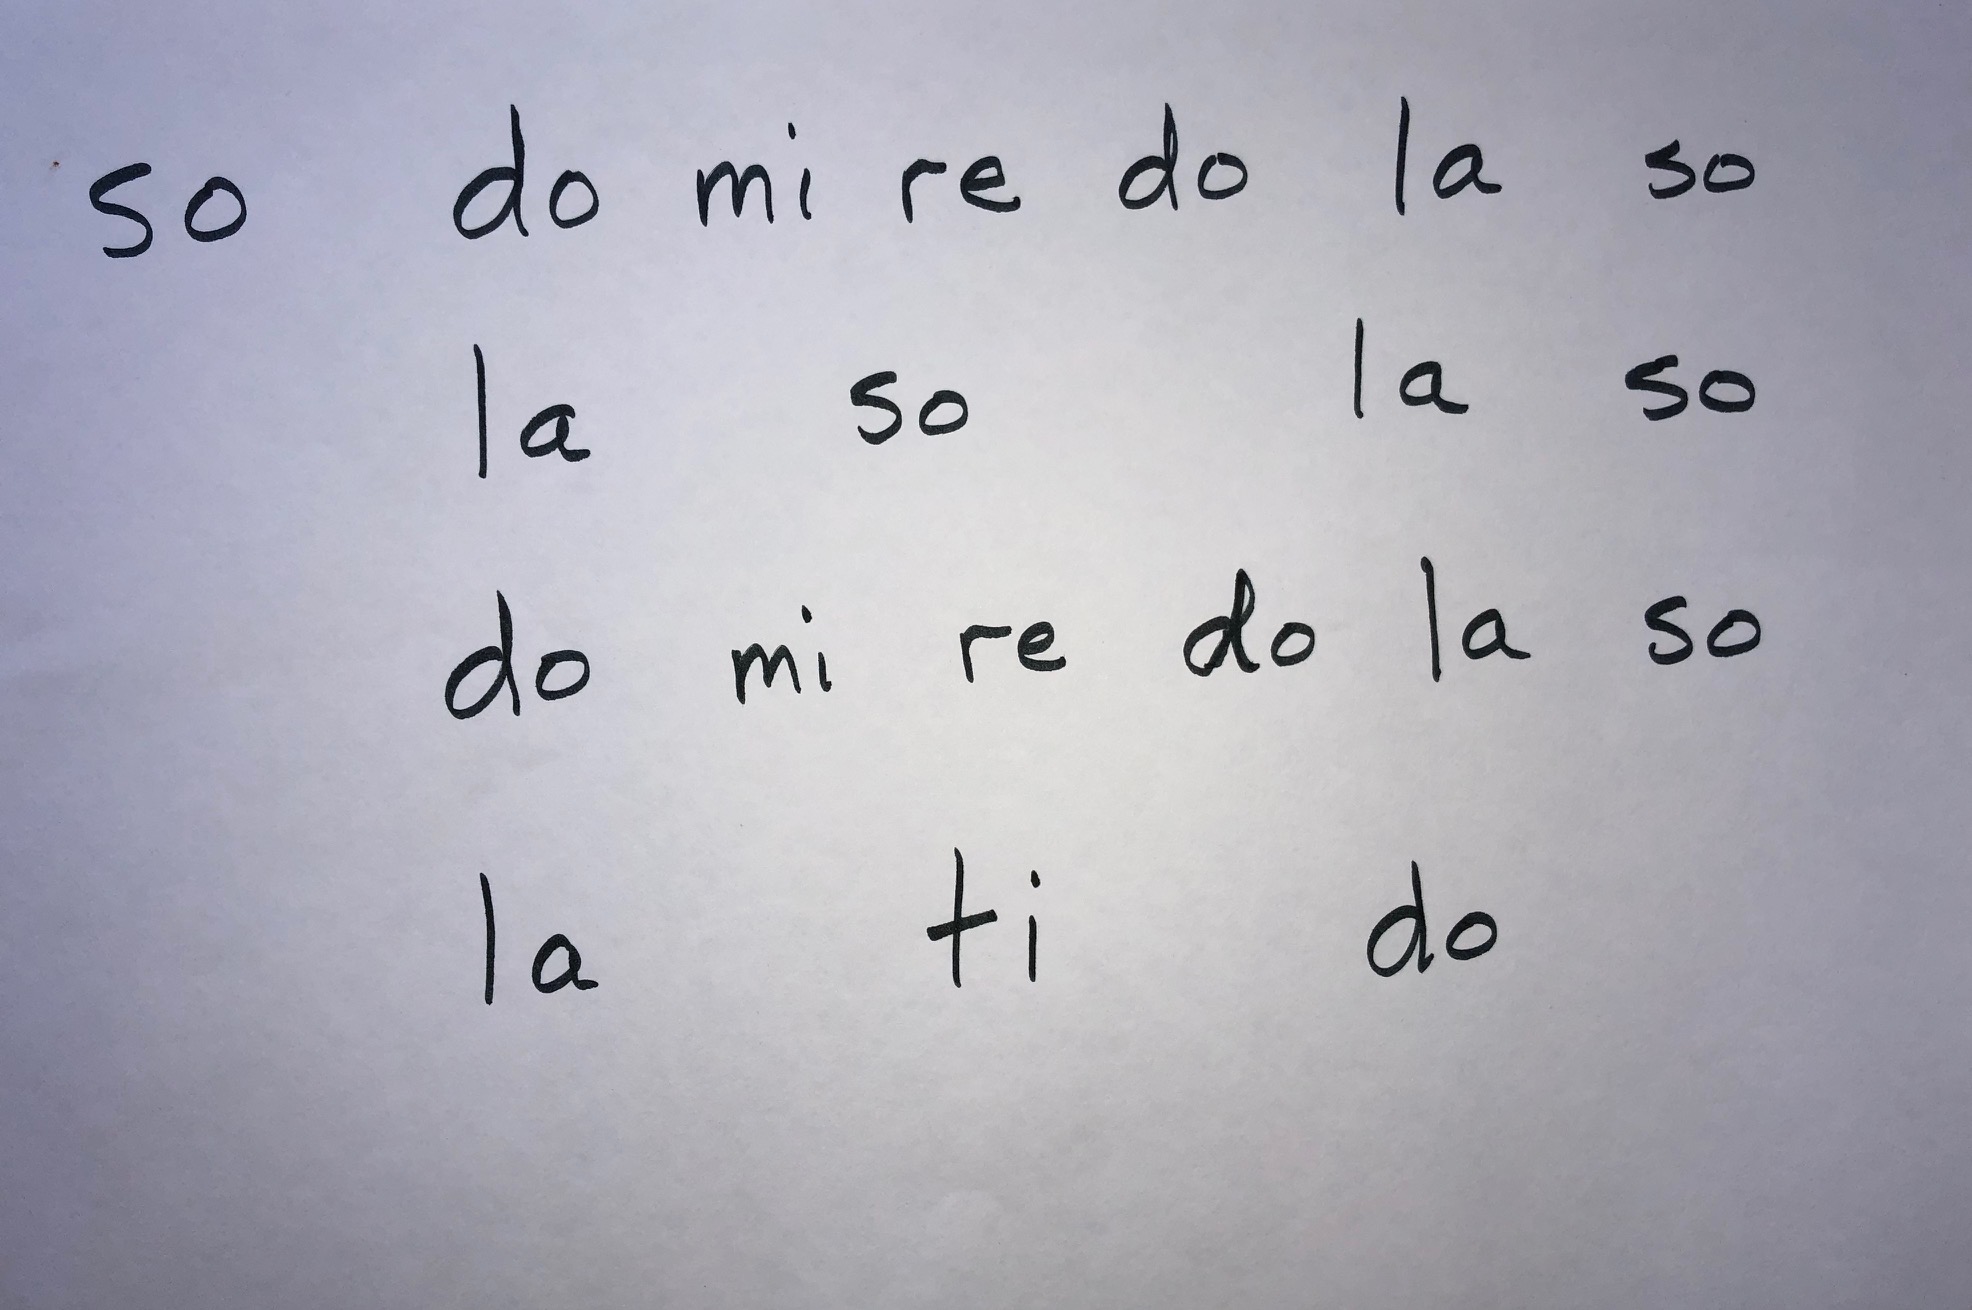 so do mi re do la so
la so la so
do mi re do la so
la ti do